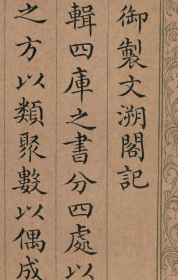 御製文溯閣記
輯四庫之書分四處以
之方以類聚數以偶成